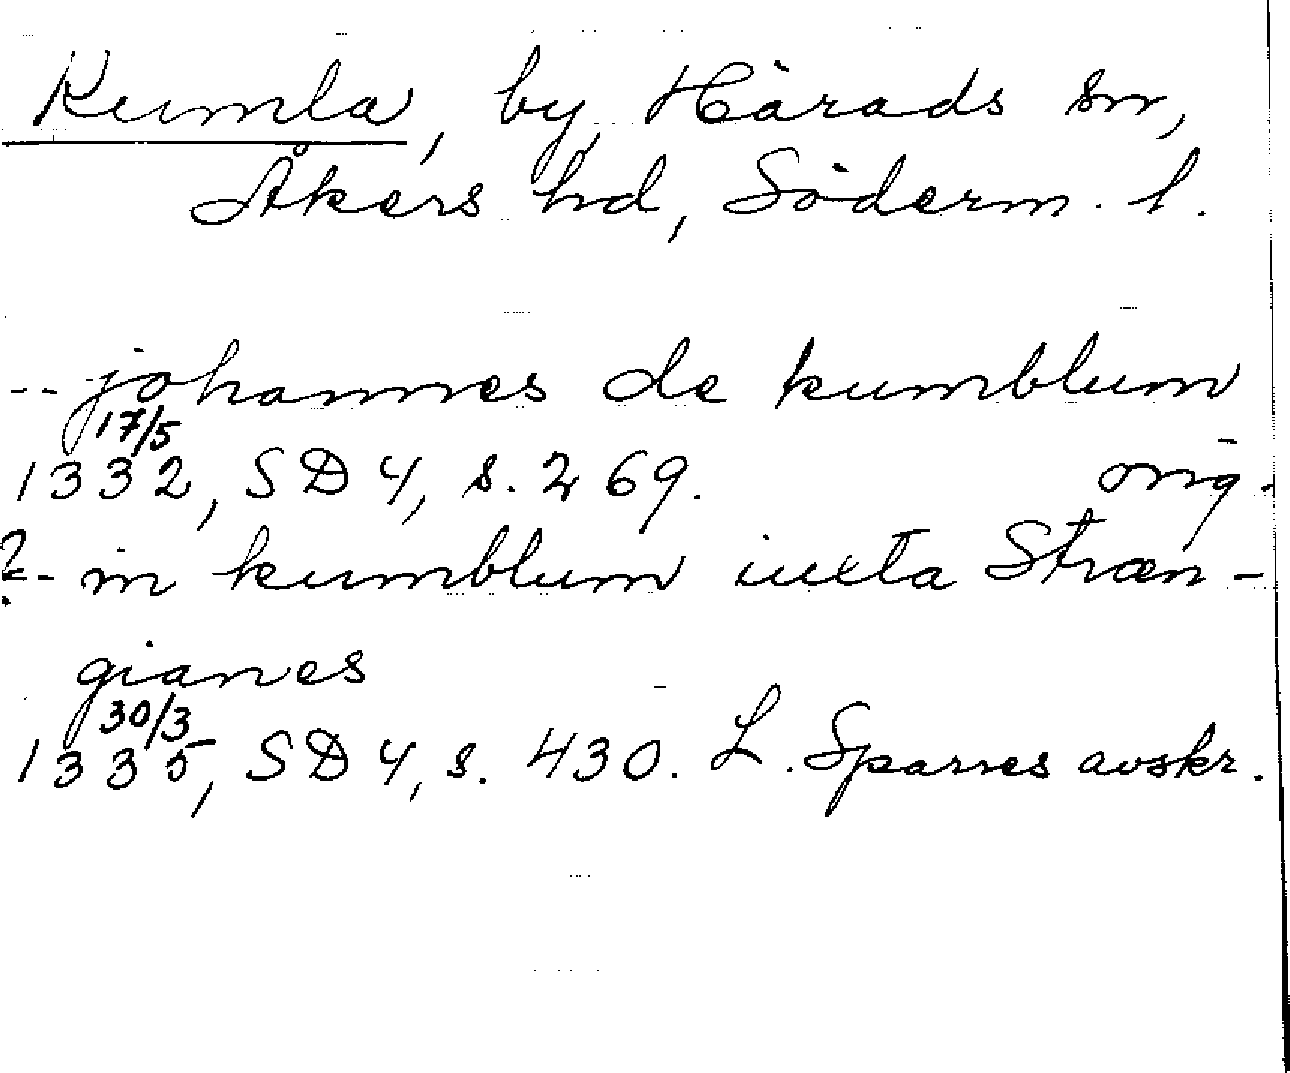 Kumla, by, Härads sn,
Åkers hd, Söderm. l.
-- johannes de kumblum
17/5
1332, SD 4, s. 269. orig.
?-- in kumblum iuxta Stræn-
gianes
30/3
1335, SD 4, s. 430. L. Sparres avskr.